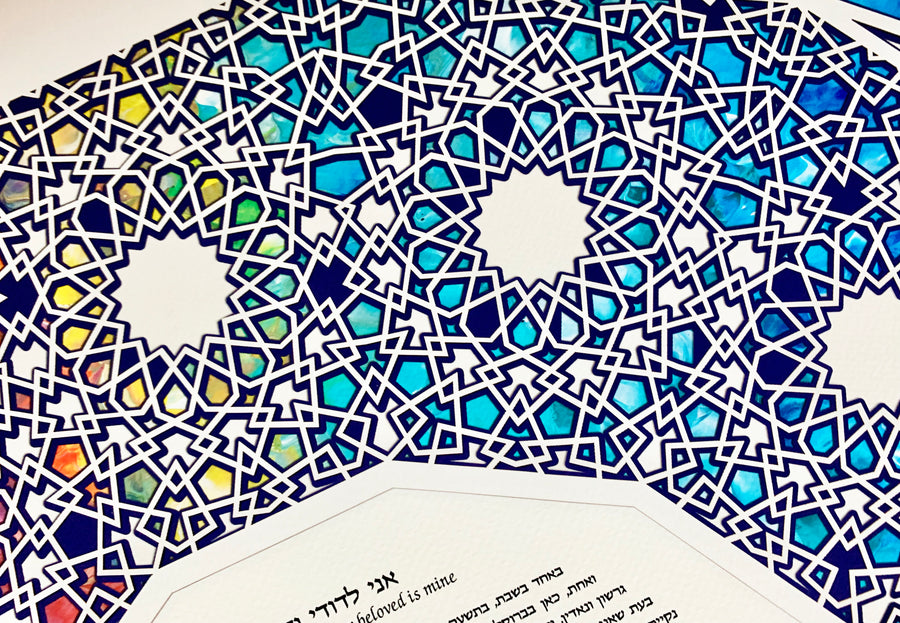 אני לדודי
beloved is mine
באחד בשבת, בתשעה
ואחת, כאן
גרשון ונאדין,
בעת